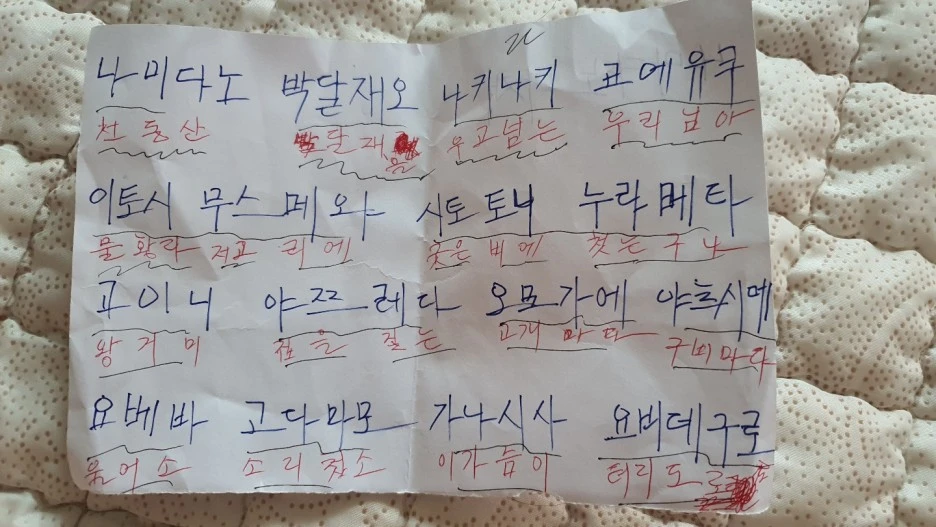 나미다노 박달재오 나키나키 꼬에유쿠
천둥산 박달재 을 우고넘는 우리님아
이토시 무스메와 시토토니 누라베타
물항라 저고리에 궂은비에 젓는구나
고이니 야쯔레다 오모가에 야츠시메
왕거미 집을 짓는 고개마다 구비마다
요베바 고다마모 가나시사 요비데구루
울어소 소리쳤소 이가슴이 터리도록